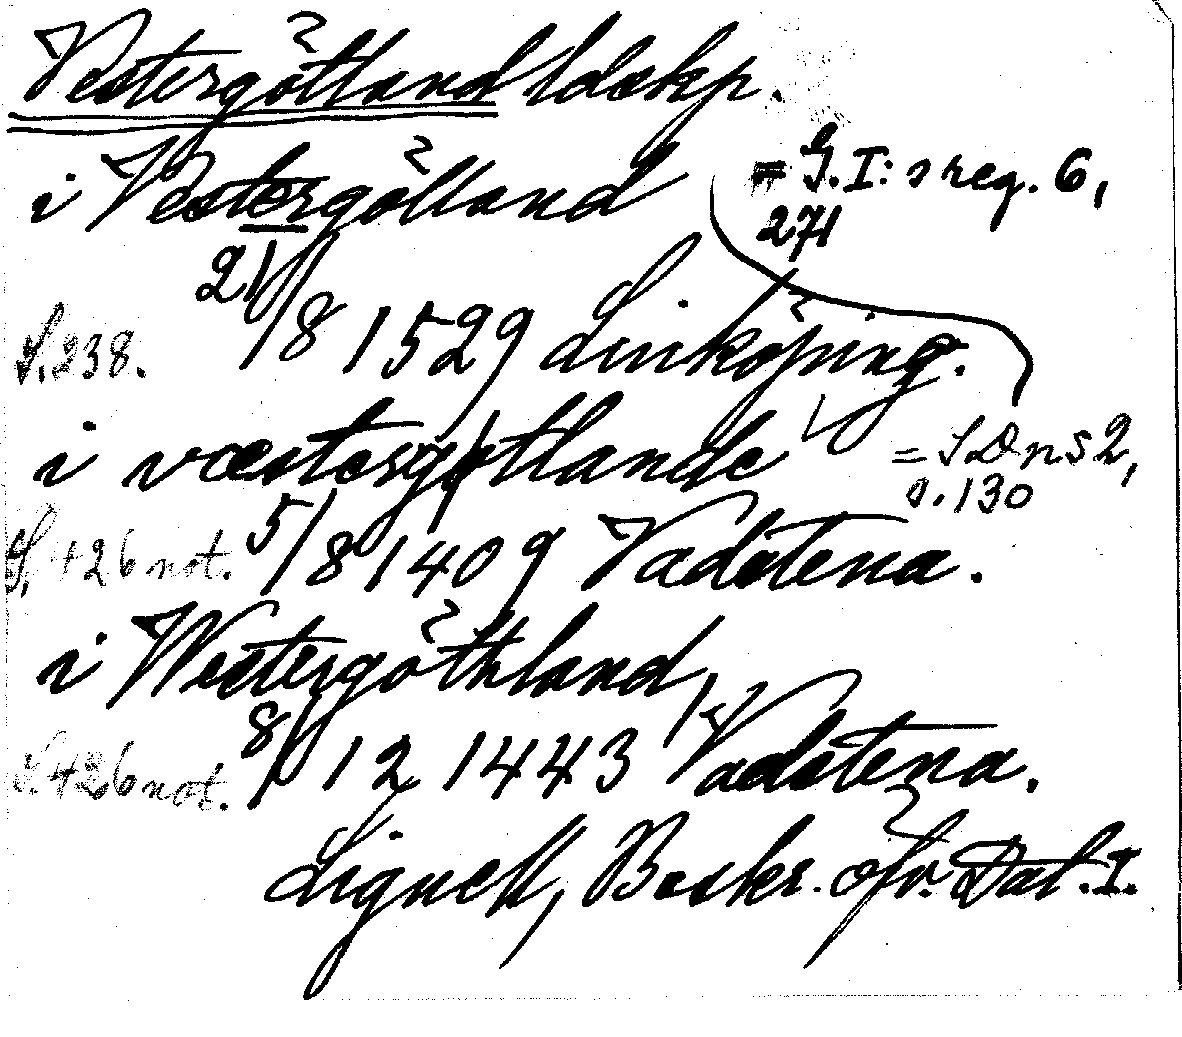 Vestergötland ldskp.
i Vestergötland = G.I:s reg. 6,
271
S. 238. 21/8 1529 Linköping.
i væstergøtlande = SD ns 2,
s. 130
S. 426 not. 5/8 1409 Vadstena.
i Westergöthland
S. 426 not. 8/12 1443 Vadstena.
Lignell, Beskr. öfv. Dal. I.